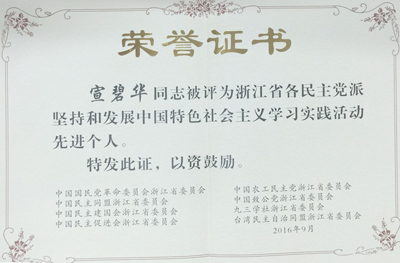 荣誉证书
宣碧华同志被评为浙江省各民主党派
坚持和发展中国特色社会主义学习实践活动
先进个人。
特发此证，以资鼓励。
中国国民党革命委员会浙江省委员会
中国民主同盟浙江省委员会
中国民主建国会浙江省委员会
中国民主促进会浙江省委员会
中国农工民主党浙江省委员会
中国致公党浙江省委员会
九三学社浙江省委员会
台湾民主自治同盟浙江省委员会
2016年9月